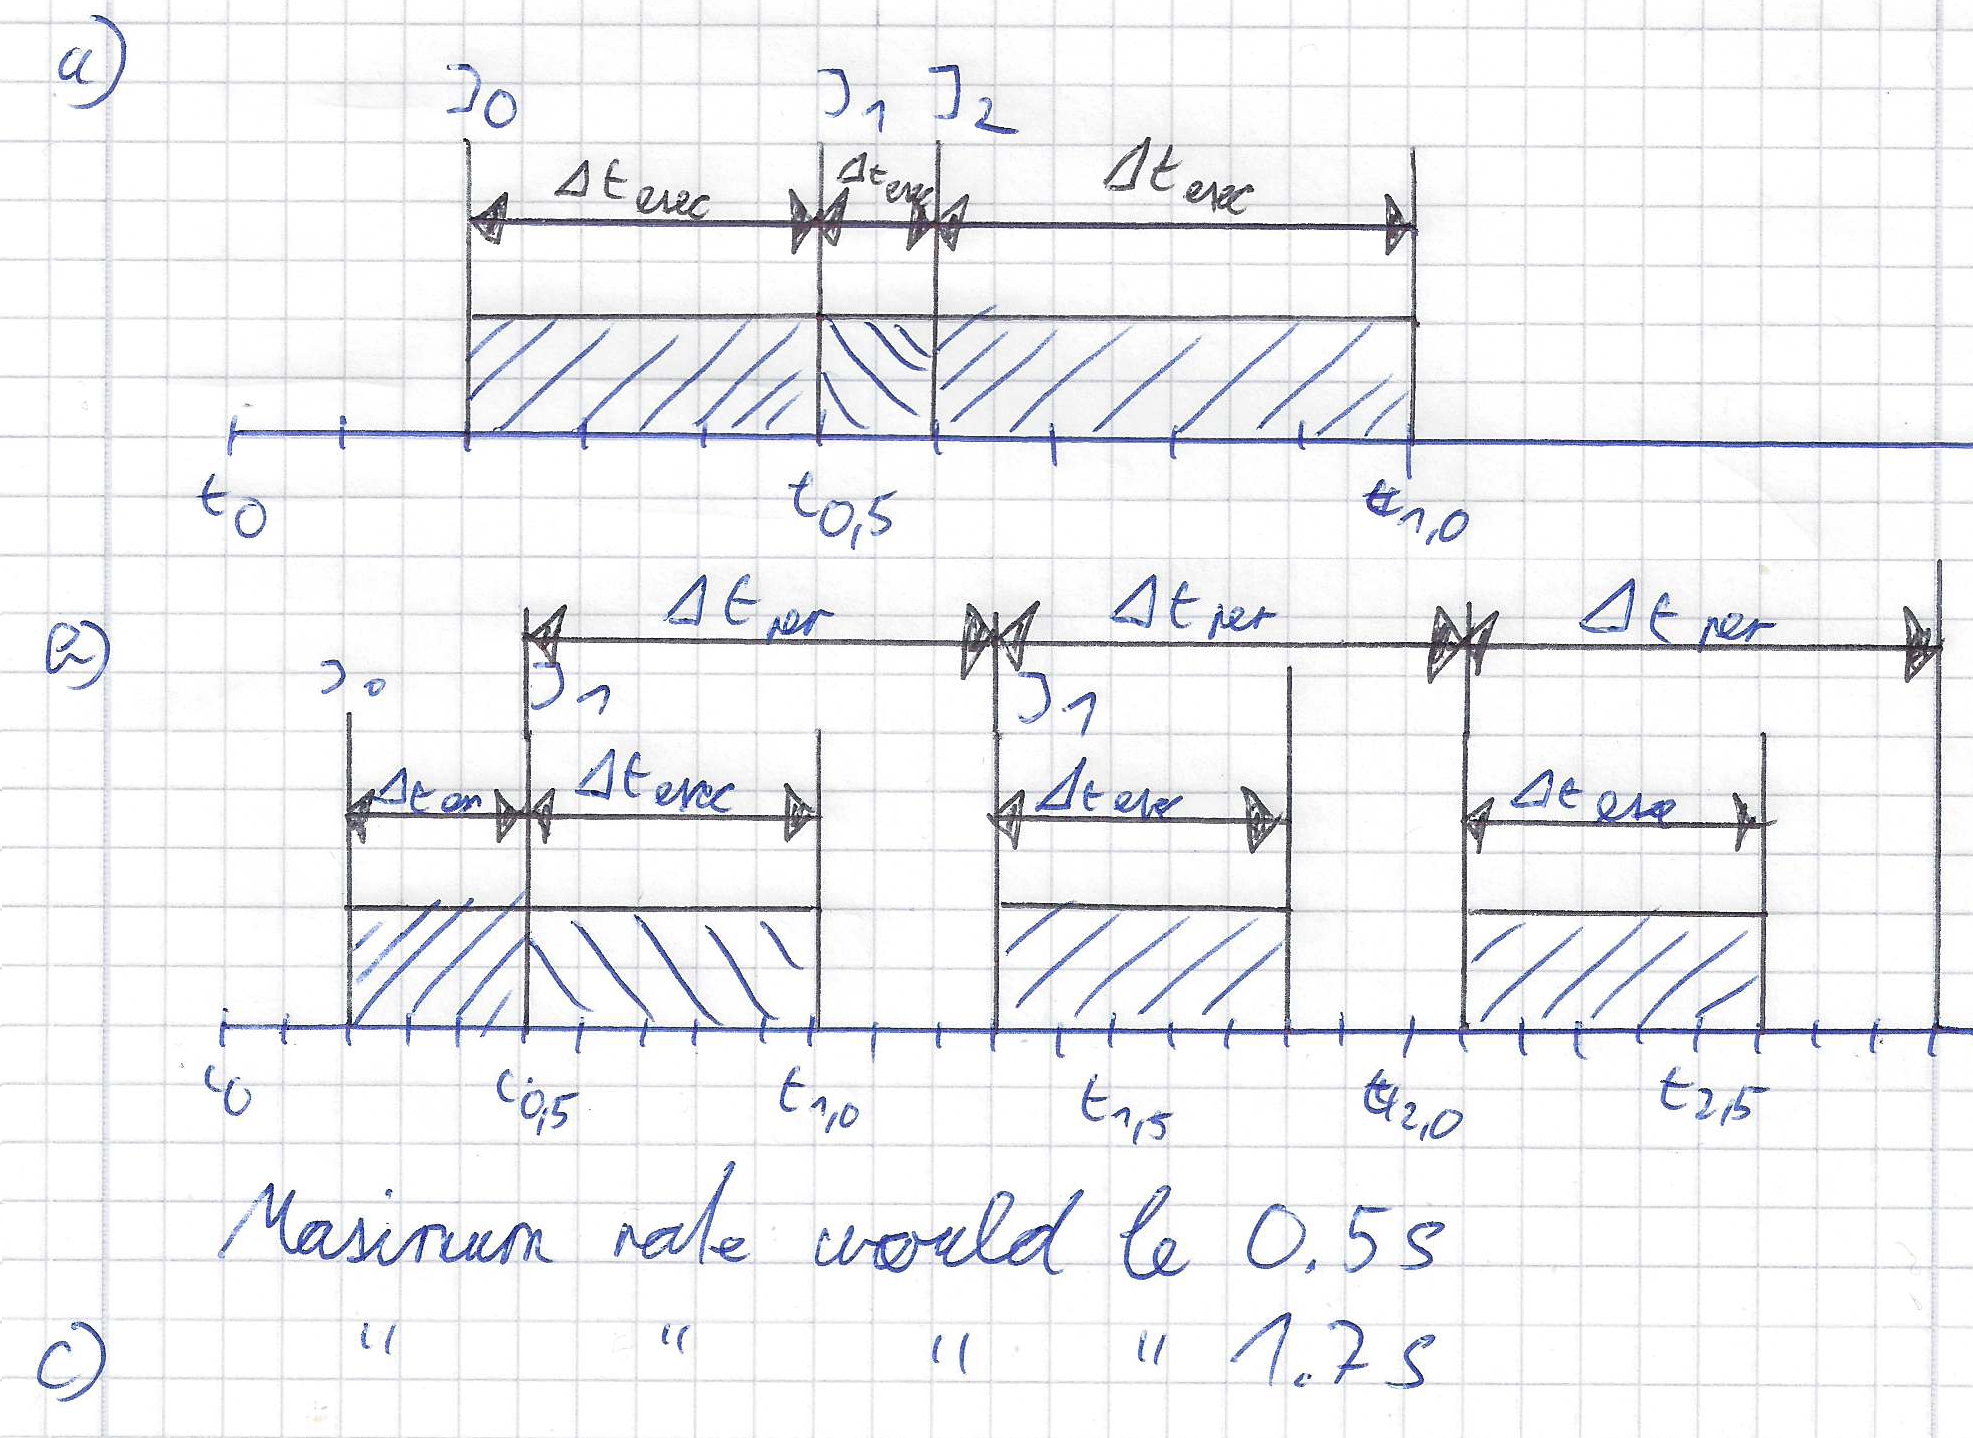 a)
J0 J1 J2
Δt exec Δt exec Δt exec
t0 t0,5 t1,0
Δt per Δt per Δt per
b)
J0 J1 J1
Δt exec Δt exec Δt exec
t0 t0,5 t1,0 t1,5 t2,0 t2,5
Maximum rate would be 0.5s
c) " " " " 1.7s